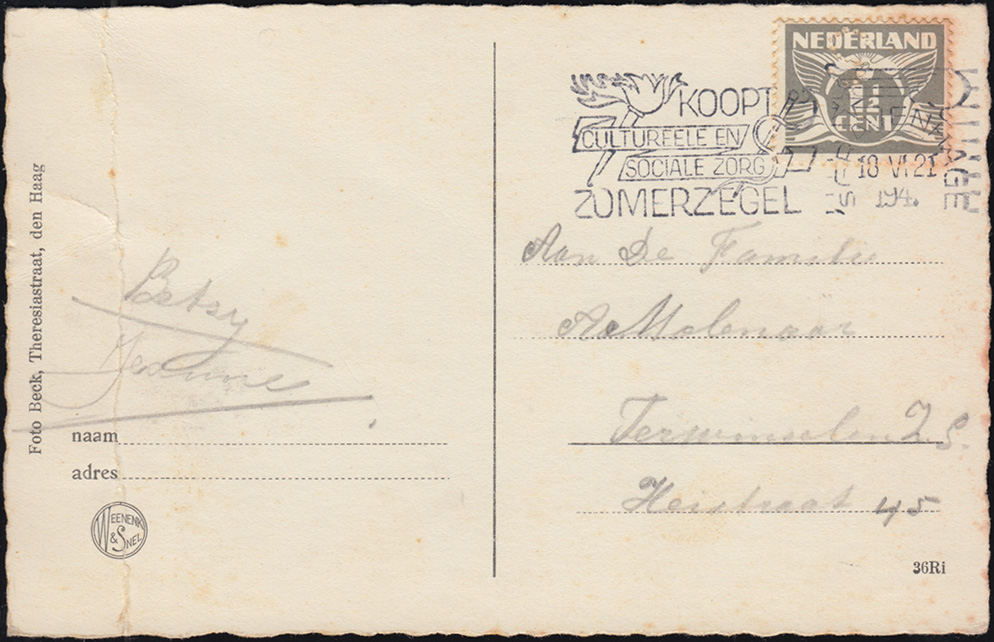 NEDERLAND
1½
CENT
KOOPT
CULTUREELE EN
SOCIALE ZORG
ZOMERZEGEL
18 VI 21
194.
Aan De Familie
A Molenaar
Terwinselen Z.L.
Heistraat 45
Betsy
naam
adres
WEENENK
& SNEL
Foto Beck, Theresiastraat, den Haag
36Ri